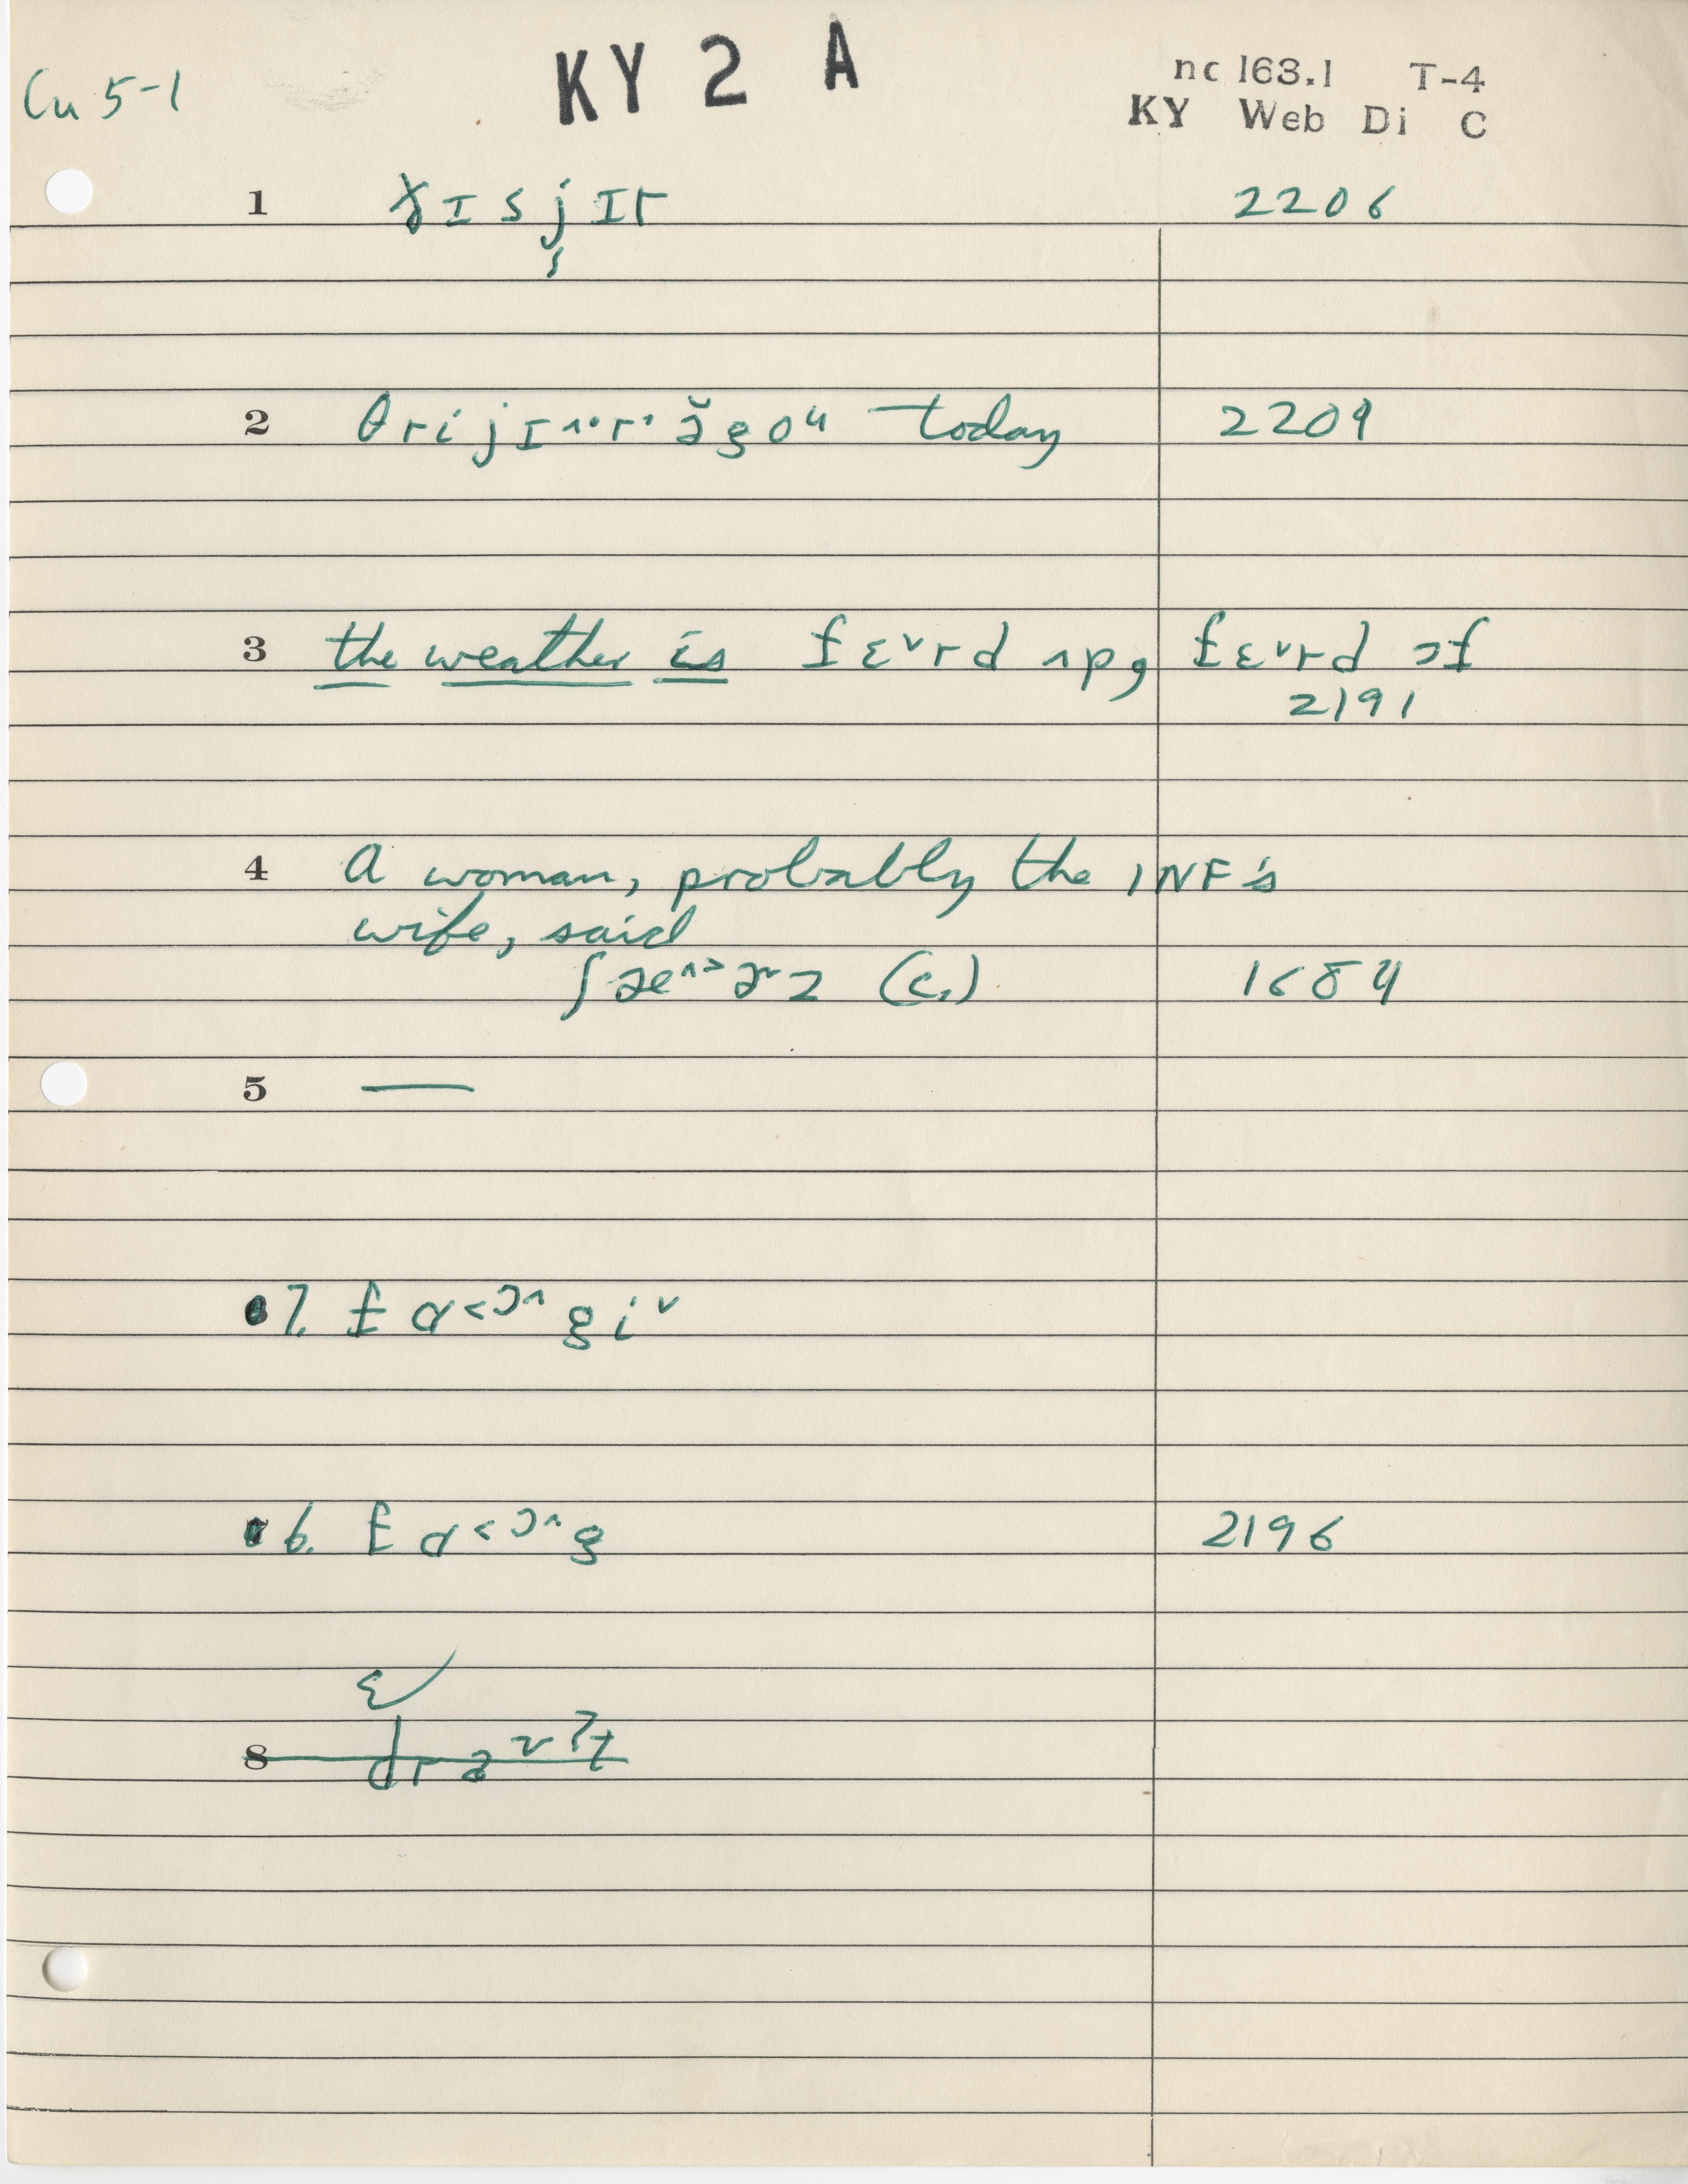 Cu 5-1
KY 2 A
nc 163.1 T-4
KY Web Di C
1 ɣɪsjɪr 2206
2 θrijɪ^r ə̆goᵘ today 2209
3 the weather is fɛ˅rd ʌp, fɛ˅rd əf
2191
4 A woman, probably the INF's
wife, said
ʃæ^>ə˅z (c.) 1684
5 —
7. fɑ<ɔ^gi˅
6. fɑ<ɔ^g 2196
ɛ
8